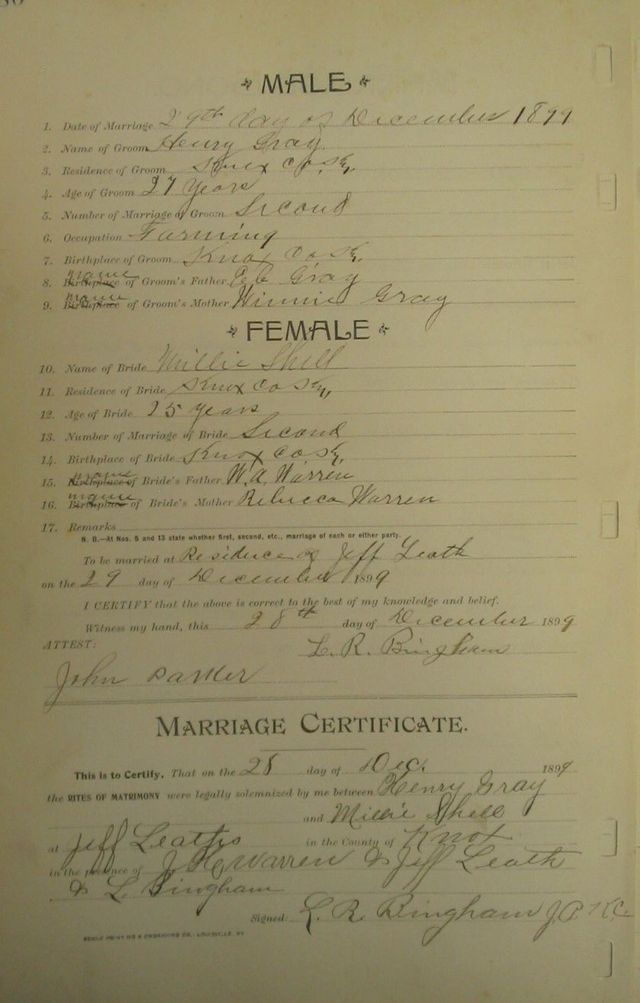 MALE
1. Date of Marriage 29th day of December 1899
2. Name of Groom Henry Gray
3. Residence of Groom Knox Co Ky,
4. Age of Groom 27 Years
5. Number of Marriage of Groom Second
6. Occupation Farming
7. Birthplace of Groom Knox Co Ky,
8. Birthplace name of Groom's Father Gray
9. Birthplace name of Groom's Mother Winnie Gray
FEMALE
10. Name of Bride Millie Shell
11. Residence of Bride Knox Co Ky,
12. Age of Bride 25 years
13. Number of Marriage of Bride Second
14. Birthplace of Bride Knox Co Ky,
15. Birthplace name of Bride's Father W.A. Warren
16. Birthplace name of Bride's Mother Rebecca Warren
17. Remarks
N. B.—At Nos. 5 and 13 state whether first, second, etc., marriage of each or either party.
To be married at Residence of Jeff Leath
on the 29 day of December 1899
I CERTIFY that the above is correct to the best of my knowledge and belief.
Witness my hand, this 28th day of December 1899
ATTEST: L. R. Bingham
John Parker
MARRIAGE CERTIFICATE.
This is to Certify, That on the 28 day of Dec. 1899
the RITES OF MATRIMONY were legally solemnized by me between Henry Gray
and Millie Shell
at Jeff Leaths in the County of Knox
in the presence of Warren & Jeff Leath
& L. Bingham
Signed: L. R. Bingham J.P. K.C.